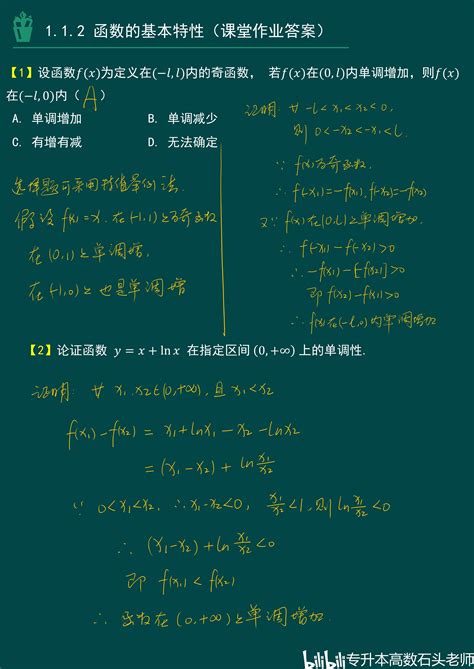 1.1.2 函数的基本特性（课堂作业答案）
【1】设函数f(x)为定义在(−l,l)内的奇函数， 若f(x)在(0,l)内单调增加，则f(x)
在(−l,0)内（ A ）
A. 单调增加 B. 单调减少
C. 有增有减 D. 无法确定
选择题可采用特值举例法.
假设 f(x)=x. 在(-1,1)上为奇函数
在(0,1)上单调增,
在(-1,0)上也是单调增
证明: ∀ -l<x₁<x₂<0,
则 0<-x₂<-x₁<l.
∵ f(x)为奇函数.
∴ f(-x₁)=-f(x₁), f(-x₂)=-f(x₂)
又∵ f(x)在(0,l)上单调增加.
∴ f(-x₁)-f(-x₂)>0
∴ -f(x₁)-[-f(x₂)]>0
即 f(x₂)-f(x₁)>0
∴ f(x)在(-l,0)内单调增加
【2】论证函数 y = x + ln x 在指定区间 (0,+∞) 上的单调性.
证明: ∀ x₁.x₂∈(0,+∞), 且 x₁<x₂
f(x₁)-f(x₂) = x₁+lnx₁-x₂-lnx₂
= (x₁-x₂) + ln x₁/x₂
∵ 0<x₁<x₂, ∴ x₁-x₂<0, x₁/x₂<1, 则 ln x₁/x₂<0
∴ (x₁-x₂)+ln x₁/x₂<0
即 f(x₁) < f(x₂)
∴ 函数在(0,+∞)上单调增加.
bilibili 专升本高数石头老师